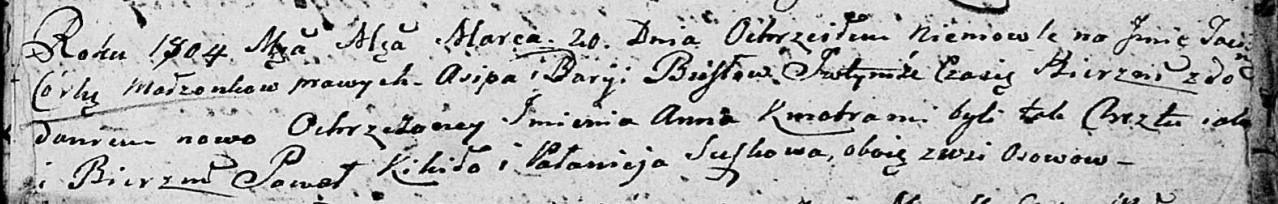 Roku 1804 Mca Mca Marca. 20. Dnia Ochrzciłem niemowle na Jmię
Córkę Małzonkow prawych. Asipa i Baryi Busłow. Twtymże Czasię Bierzm z do
daniem nowo Ochrzczoney Jmienia Anna Kmotrami byli tak Chrztu iak
i Bierzm Paweł Kikiło i Pałanieja Suszkowa, oboię zwsi Osowow –